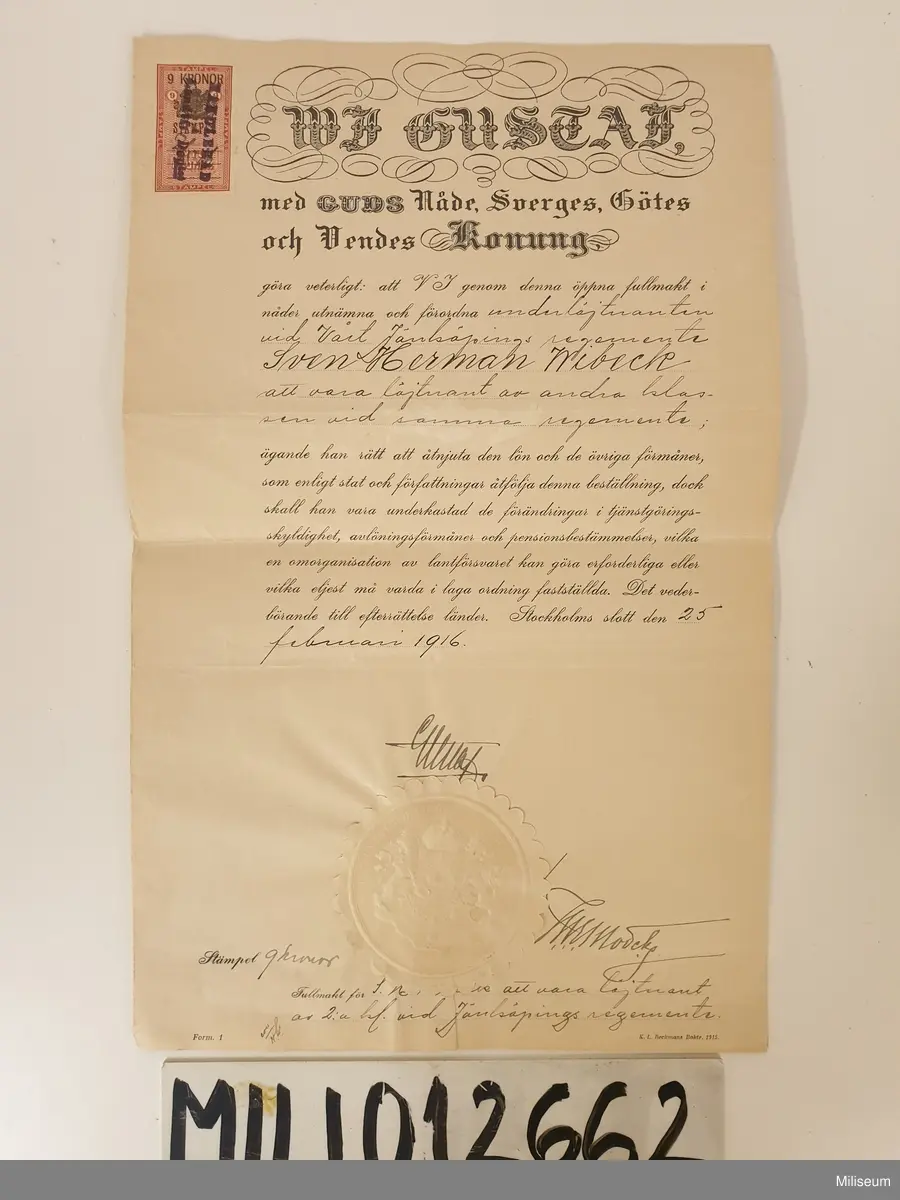 STÄMPEL
9 KRONOR
9
STÄMPEL
WJ GUSTAF,
med GUDS Nåde, Sverges, Götes
och Vendes Konung,
göra veterligt: att VJ genom denna öppna fullmakt i
nåder utnämna och förordna underlöjtnanten
vid Vårt Jönköpings regemente
Sven Herman Wibeck
att vara löjtnant av andra klas-
sen vid samma regemente;
ägande han rätt att åtnjuta den lön och de övriga förmåner,
som enligt stat och författningar åtfölja denna beställning, dock
skall han vara underkastad de förändringar i tjänstgörings-
skyldighet, avlöningsförmåner och pensionsbestämmelser, vilka
en omorganisation av lantförsvaret kan göra erforderliga eller
vilka eljest må varda i laga ordning fastställda. Det veder-
börande till efterrättelse länder. Stockholms slott den 25
februari 1916.
Gustaf
Stämpel 9 kronor
Fullmakt för S. att vara löjtnant
av 2:a kl. vid Jönköpings regemente.
Form. 1
K. L. Beckmans Boktr. 1915.
MILI 012662
Miliseum